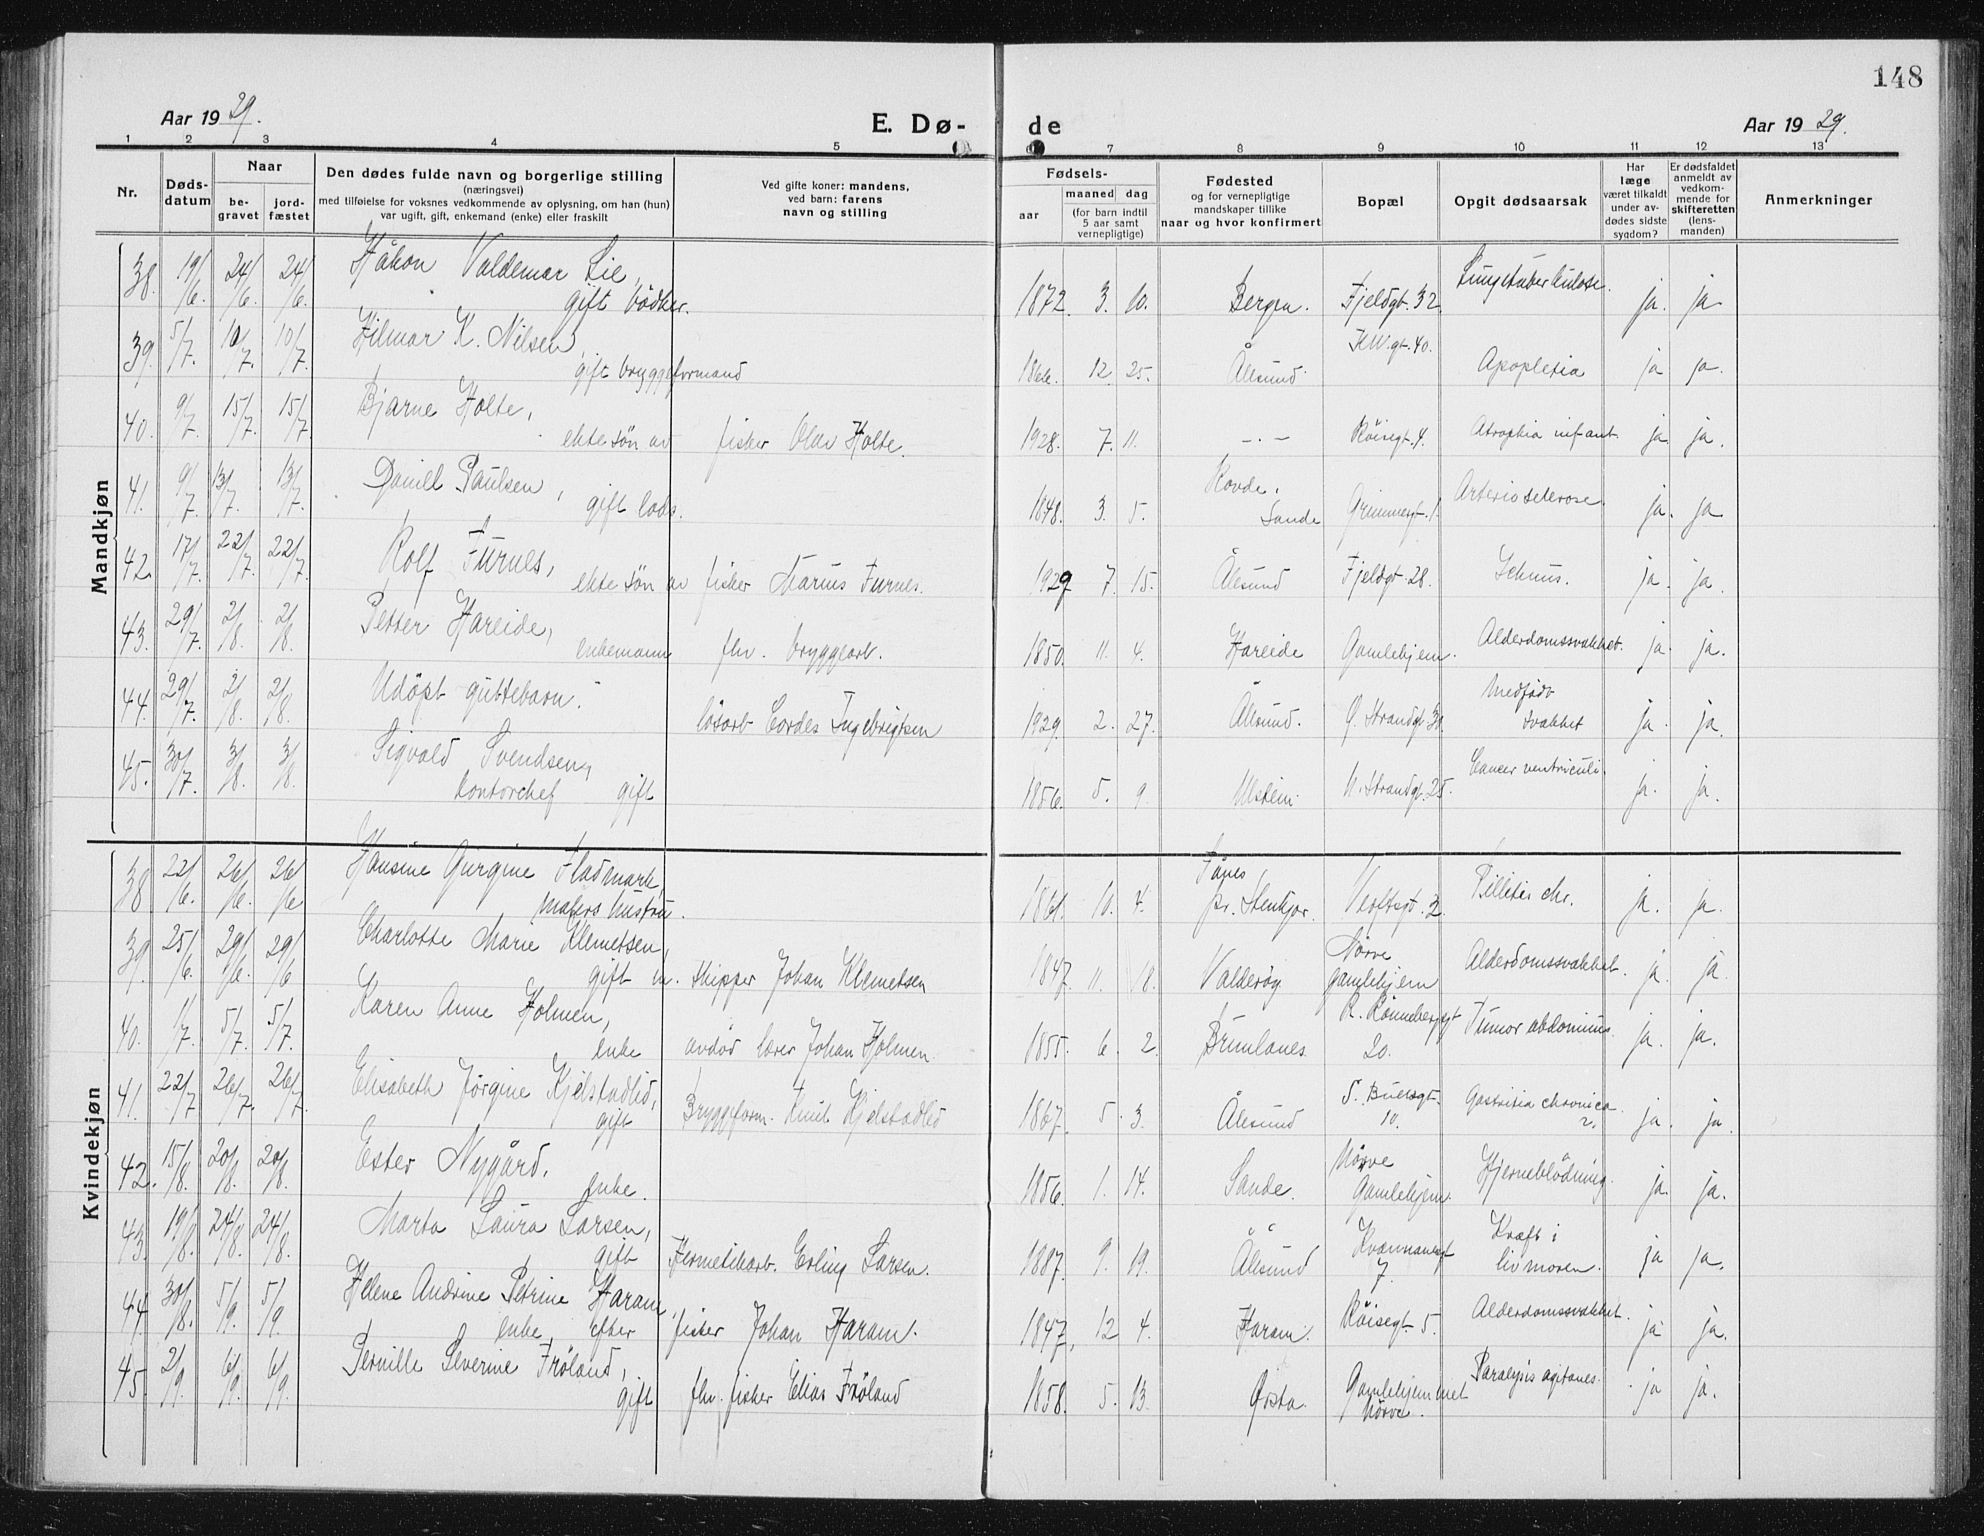 148
Aar 1929.
E. Dø-
de
Aar 1929.
1 2 3 4 5 7 8 9 10 11 12 13
Nr.
Døds-
datum
Naar
be-
gravet
jord-
fæstet
Den dødes fulde navn og borgerlige stilling
(næringsvei)
med tilføielse for voksnes vedkommende av oplysning, om han (hun)
var ugift, gift, enkemand (enke) eller fraskilt
Ved gifte koner: mandens,
ved barn: farens
navn og stilling
Fødsels-
aar
maaned dag
(for barn indtil
5 aar samt
vernepligtige)
Fødested
og for vernepligtige
mandskaper tillike
naar og hvor konfirmert
Bopæl
Opgit dødsaarsak
Har
læge
været tilkaldt
under av-
dødes sidste
sygdom?
Er dødsfaldet
anmeldt av
vedkom-
mende for
skifteretten
(lens-
manden)
Anmerkninger
Mandkjøn
38. 19/6. 24/6. 24/6. Håkon Valdemar Lie,
gift bødker. 1872. 3. 10. Bergen. Fjeldgt. 32. Lungetuberkulose. ja. ja
39. 5/7. 10/7. 10/7. Hilmar K. Nilsen,
gift bryggeformand 1866. 12. 25. Ålesund K.W.gt. 40. Apoplexia ja ja.
40. 9/7. 15/7. 15/7. Bjarne Holte,
ekte søn av fisker Olav Holte. 1928. 7. 11. — . — Røisegt. 4. Atrophia infant. ja ja.
41. 9/7. 13/7. 13/7. Daniel Paulsen,
gift lods. 1848. 3. 5. Rovde, Sande Grimmergt. 1. Arteriosclerose. ja. ja
42. 17/7. 22/7. 22/7. Rolf Furnes,
ekte søn av fisker Marius Furnes. 1929 7. 15. Ålesund Fjeldgt. 28. Icterus. ja. ja.
43. 29/7. 2/8. 2/8. Petter Hareide,
enkemann fhv. bryggearb. 1850. 11. 4. Hareide Gamlehjem. Alderdomssvakhet. ja. ja.
44. 29/7. 2/8. 2/8. Udøpt guttebarn.
løsarb Cordes Ingebrigtsen 1929. 2. 27. Ålesund. Ø. Strandgt. 31. Medfødt svakhet ja. ja.
45. 30/7. 3/8. 3/8. Sigvald Svendsen,
kontorchef gift 1856. 5. 9. Ulstein N. Strandgt. 25. Cancer ventriculi. ja. ja.
Kvindekjøn
38. 22/6. 26/6. 26/6 Hansine Gurgine Fladmark,
malers hustru. 1861. 10. 4. Fånes, pr. Stenkjær. Verftsgt. 2. chr. ja. ja.
39. 25/6. 29/6. 29/6 Charlotte Marie Klemetsen,
gift m. skipper Johan Klemetsen 1847. 11. 18. Valderøy Nørve gamlehjem Alderdomssvakhet. ja. ja
40. 1/7. 5/7. 5/7. Karen Anne Holmen,
enke avdød lærer Johan Holmen. 1855. 6. 2. Brunlanes. R. Rønnebergsgt 20. Tumor abdominus. ja. ja.
41. 22/7 26/7. 26/7. Elisabeth Jørgine Kjelstadlid,
gift Bryggeform. Knut Kjelstadlid 1867. 5. 3. Ålesund S. Buersgt. 10. Gastritis chronica ja. ja.
42. 15/8. 20/8. 20/8. Ester Nygård,
enke. 1856. 1. 14. Sande. Nørve Gamlehjem. Hjerneblødning. ja. ja.
43. 19/8. 24/8. 24/8. Marta Laura Larsen,
gift Hermetikarb. Erling Larsen. 1887. 9. 19. Ålesund Kvennanesgt 7. Kræft i livmoren. ja ja.
44. 30/8. 5/9. 5/9. Helene Andrine Petrine Haram,
enke, efter fisker Johan Haram. 1847, 12 4. Haram. Røisegt. 5. Alderdomssvakhet. ja ja.
45. 2/9. 6/9. 6/9. Pernille Severine Frøland,
gift fhv. fisker Elias Frøland 1858. 5. 13. Ørsta. Gamlehjemmet Nørve. Paralysis agitans. ja ja.